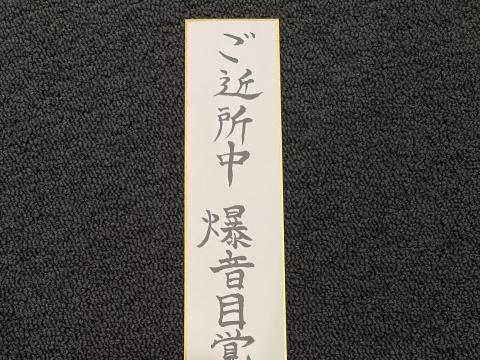 ご近所中 爆音目覚